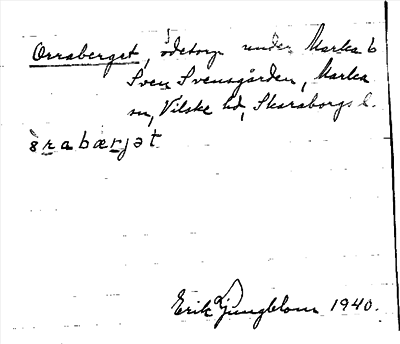 Orraberget, ödetorp under Marka 6
Sven Svensgården, Marka
sn, Vilske hd, Skaraborgs l.
ɜrabærjət
Erik Ljungblom 1940.